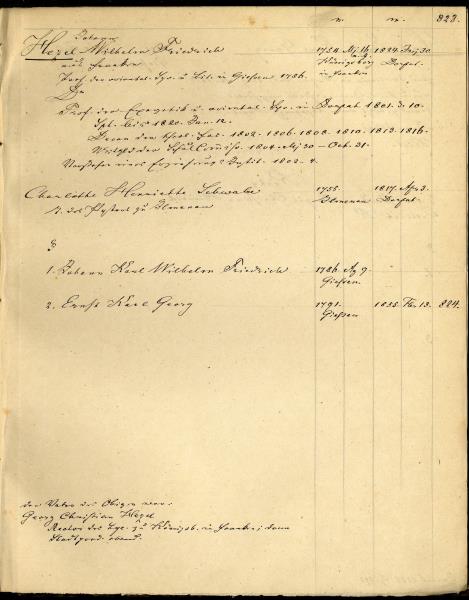 n. m. 823.
Johann
Hezel Wilhelm Friedrich 1754. Mj. 16. 1824. Jnj. 30.
aus Franken Königsberg Dorpat.
in Franken
Prof. der oriental. Spr. u. Lit. in Giessen 1786.
Dr.
Prof. der Exegetik u. oriental. Spr. in Dorpat 1801. 3. 10.
bis 1820. Jan. 12.
Decan der theol. Fac. 1802. 1806. 1808. 1810. 1813. 1816.
Mitglied der Schulcommiss. 1804. Mj. 30 - Oct. 31.
Vorsteher eines Erziehungs Instit. 1802. 4.
Charlotte Henriette Schwabe 1755. 1817. Apr. 3.
T. des zu Ilmenau Ilmenau Dorpat.
3
1. Johann Karl Wilhelm Friedrich 1786. Ag. 9.
Giessen.
2. Ernst Karl Georg 1791. 1835. 13. 824.
Giessen
der Vater des Obigen war:
Georg Christian Hezel
Rector des Lyc. zu Königsb. in Franken; dann
ebend.